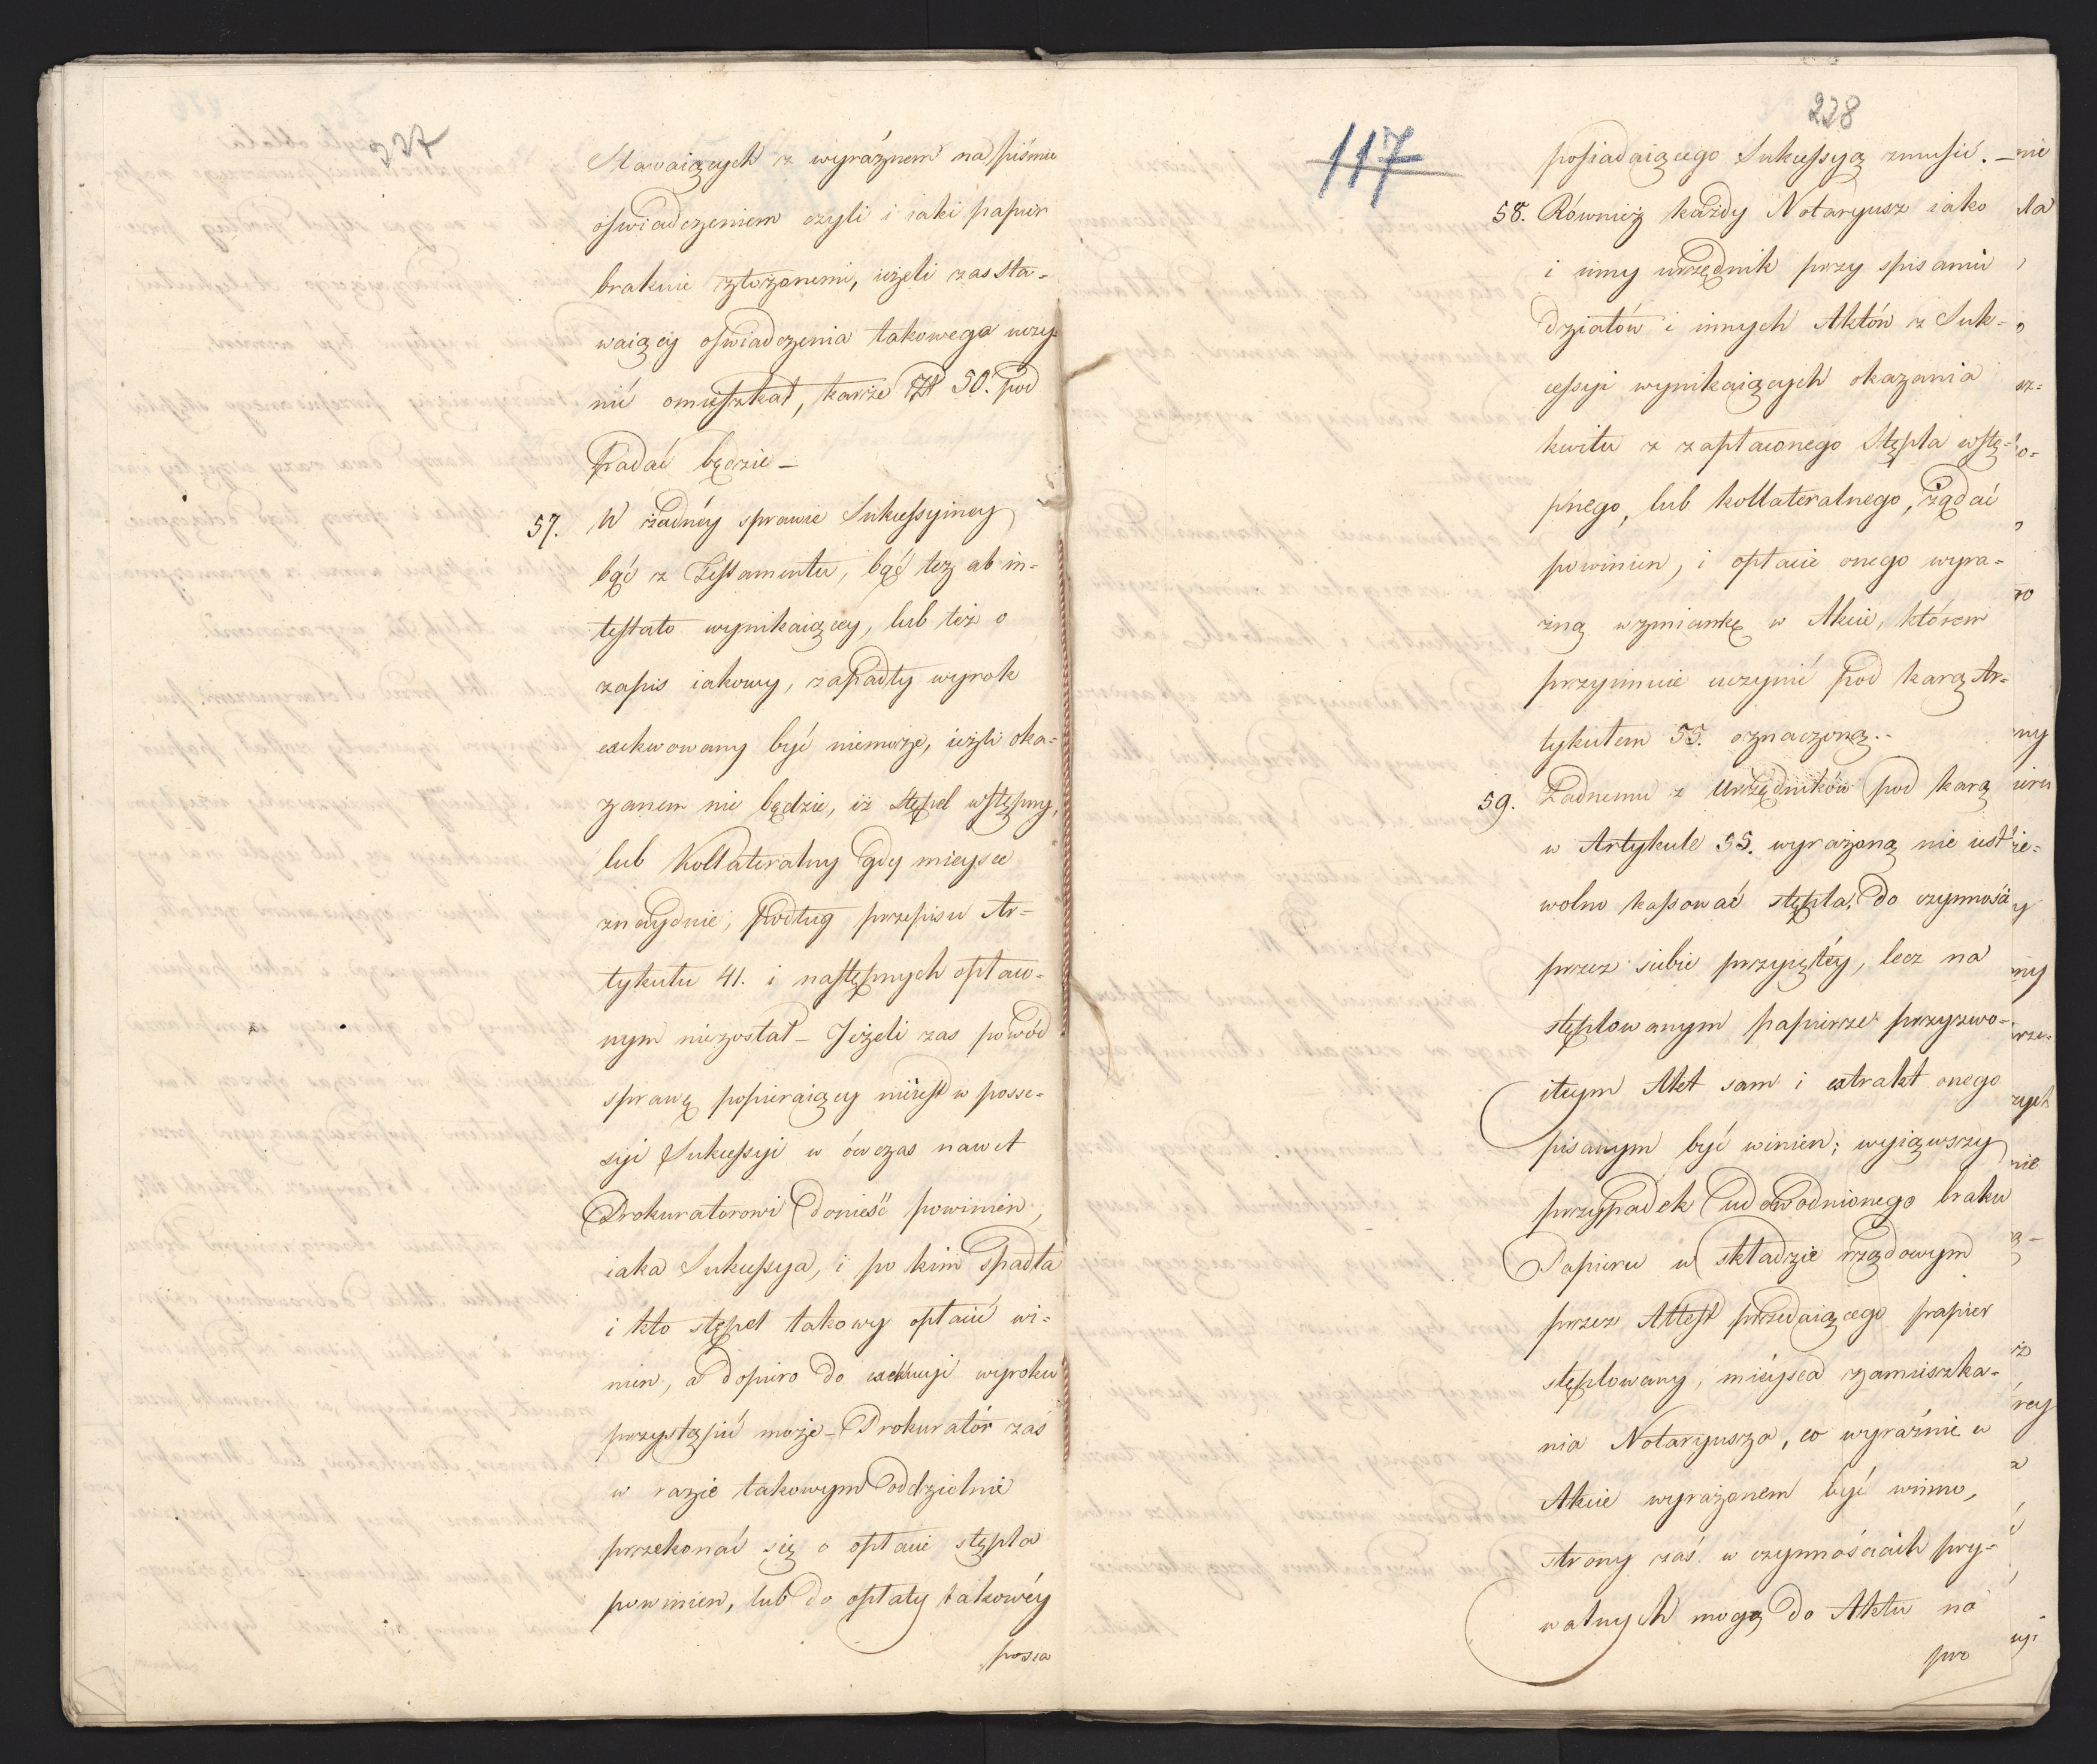 237
Stawaiących z wyráznem na piśmie
oswiadczeniem czyli i iaki papier
brakuie złożonemi, ieżeli zas sta-
waiący oswiadczenia takowego uczy-
nić omieszkał, karże Zł 50. pod
padać będzie –
57. W żadnéy sprawie Sukcessyiney
bąć z Testamentu, bąć tez ab in-
testato wynikaiącey, lub też o
zapis iakowy, zapadły wyrok
exekwowany być niemoze, ieżli oka-
zanem nie będzie, iż stępel wstępny,
lub Kollateralny gdy mieysce
znayduie, podług przepisu Ar-
tykułu 41. i następnych opłaco-
nym niezostał – Jeżeli zas powód
sprawę popieraiący nieiest w posse-
syi Sukcessyi w ówczas nawet
Prokuratorowi donieść powinien,
iaka Sukcessya, i po kim spadła
i kto stępel takowy opłacić wi-
nien, a dopiero do exekucyi wyroku
przystąpić może – Prokuratór zaś
w razie takowym oddzielnie
przekonać się o opłacie stępla
powinien, lub do opłaty takowéy
posia
117
238
posiadaiącego Sukcessyą zmusić. –
58. Również każdy Notaryusz iako
i inny urzędnik przy spisaniu
działów i innych Aktów z Suk-
cessyi wynikaiących okazania
kwitu z zapłaconego Stępla wstę-
pnego, lub kollateralnego, żądać
powinien, i opłacie onego wyra-
zną wzmiankę w Akcie, którem
przyimuie uczynić pod karą Ar-
tykułem 55. oznaczoną. –
59. Żadnemu z Urzędników pod karą
w Artykule 55. wyrażoną nie iest
wolno kassować stępla, do czynności
przez siebie przyiętéy, lecz na
stęplowanym papierze przyzwo-
itym Akt sam i extrakt onego
pisanym być winien; wyiąwszy
przypadek udowodnionego braku
Papieru w składzie rządowym
przez Attest przedaiącego papier
stęplowany, mieysca zamieszka-
nia Notaryusza, co wyraźnie w
Akcie wyrażonem być winno,
strony zaś w czynnościach pry-
watnych mogą do Aktu na
pro